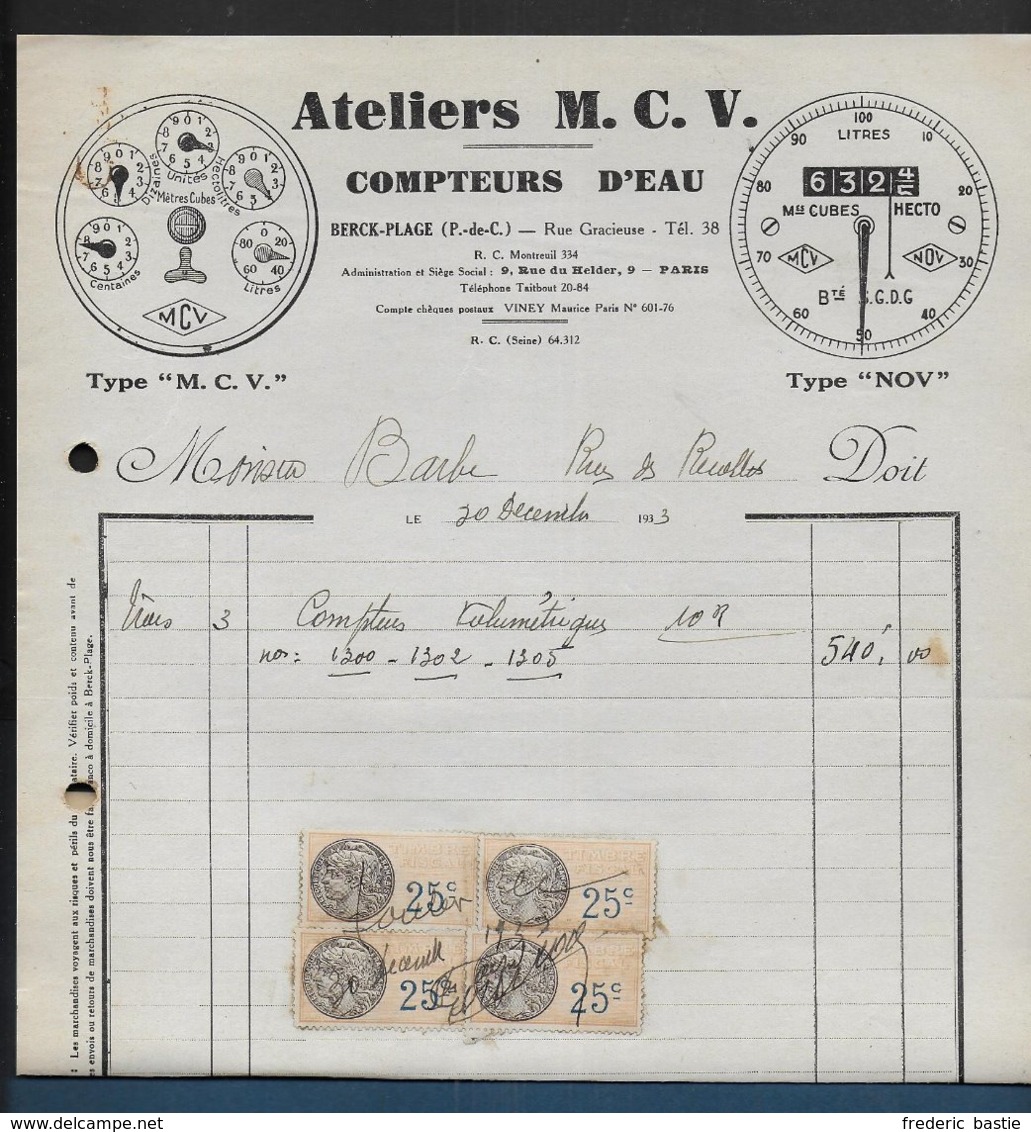 Ateliers M. C. V.
COMPTEURS D'EAU
BERCK-PLAGE (P.-de-C.) — Rue Gracieuse - Tél. 38
R. C. Montreuil 334
Administration et Siège Social : 9, Rue du Helder, 9 — PARIS
Téléphone Taitbout 20-84
Compte chèques postaux VINEY Maurice Paris Nº 601-76
R. C. (Seine) 64.312
Dizaines
Unités
Hectolitres
Mètres Cubes
Centaines
Litres
MCV
Type “M. C. V.”
100
LITRES
90 10
80 20
70 30
60 40
50
6 3 2 4
Mes CUBES HECTO
MCV NOV
Bté S.G.D.G
Type “NOV”
Monsieur Barbe Rue des Doit
LE 20 Decembre 1933
Trois 3 Compteurs Volumétriques 10
nos: 1300 - 1302 - 1305 540, 00
: Les marchandises voyagent aux risques et périls du ataire. Vérifier poids et contenu avant de
es envois ou retours de marchandises doivent nous être fa nco à domicile à Berck-Plage.
25c 25c
25c 25c
decembre
www.delcampe.net frederic bastie